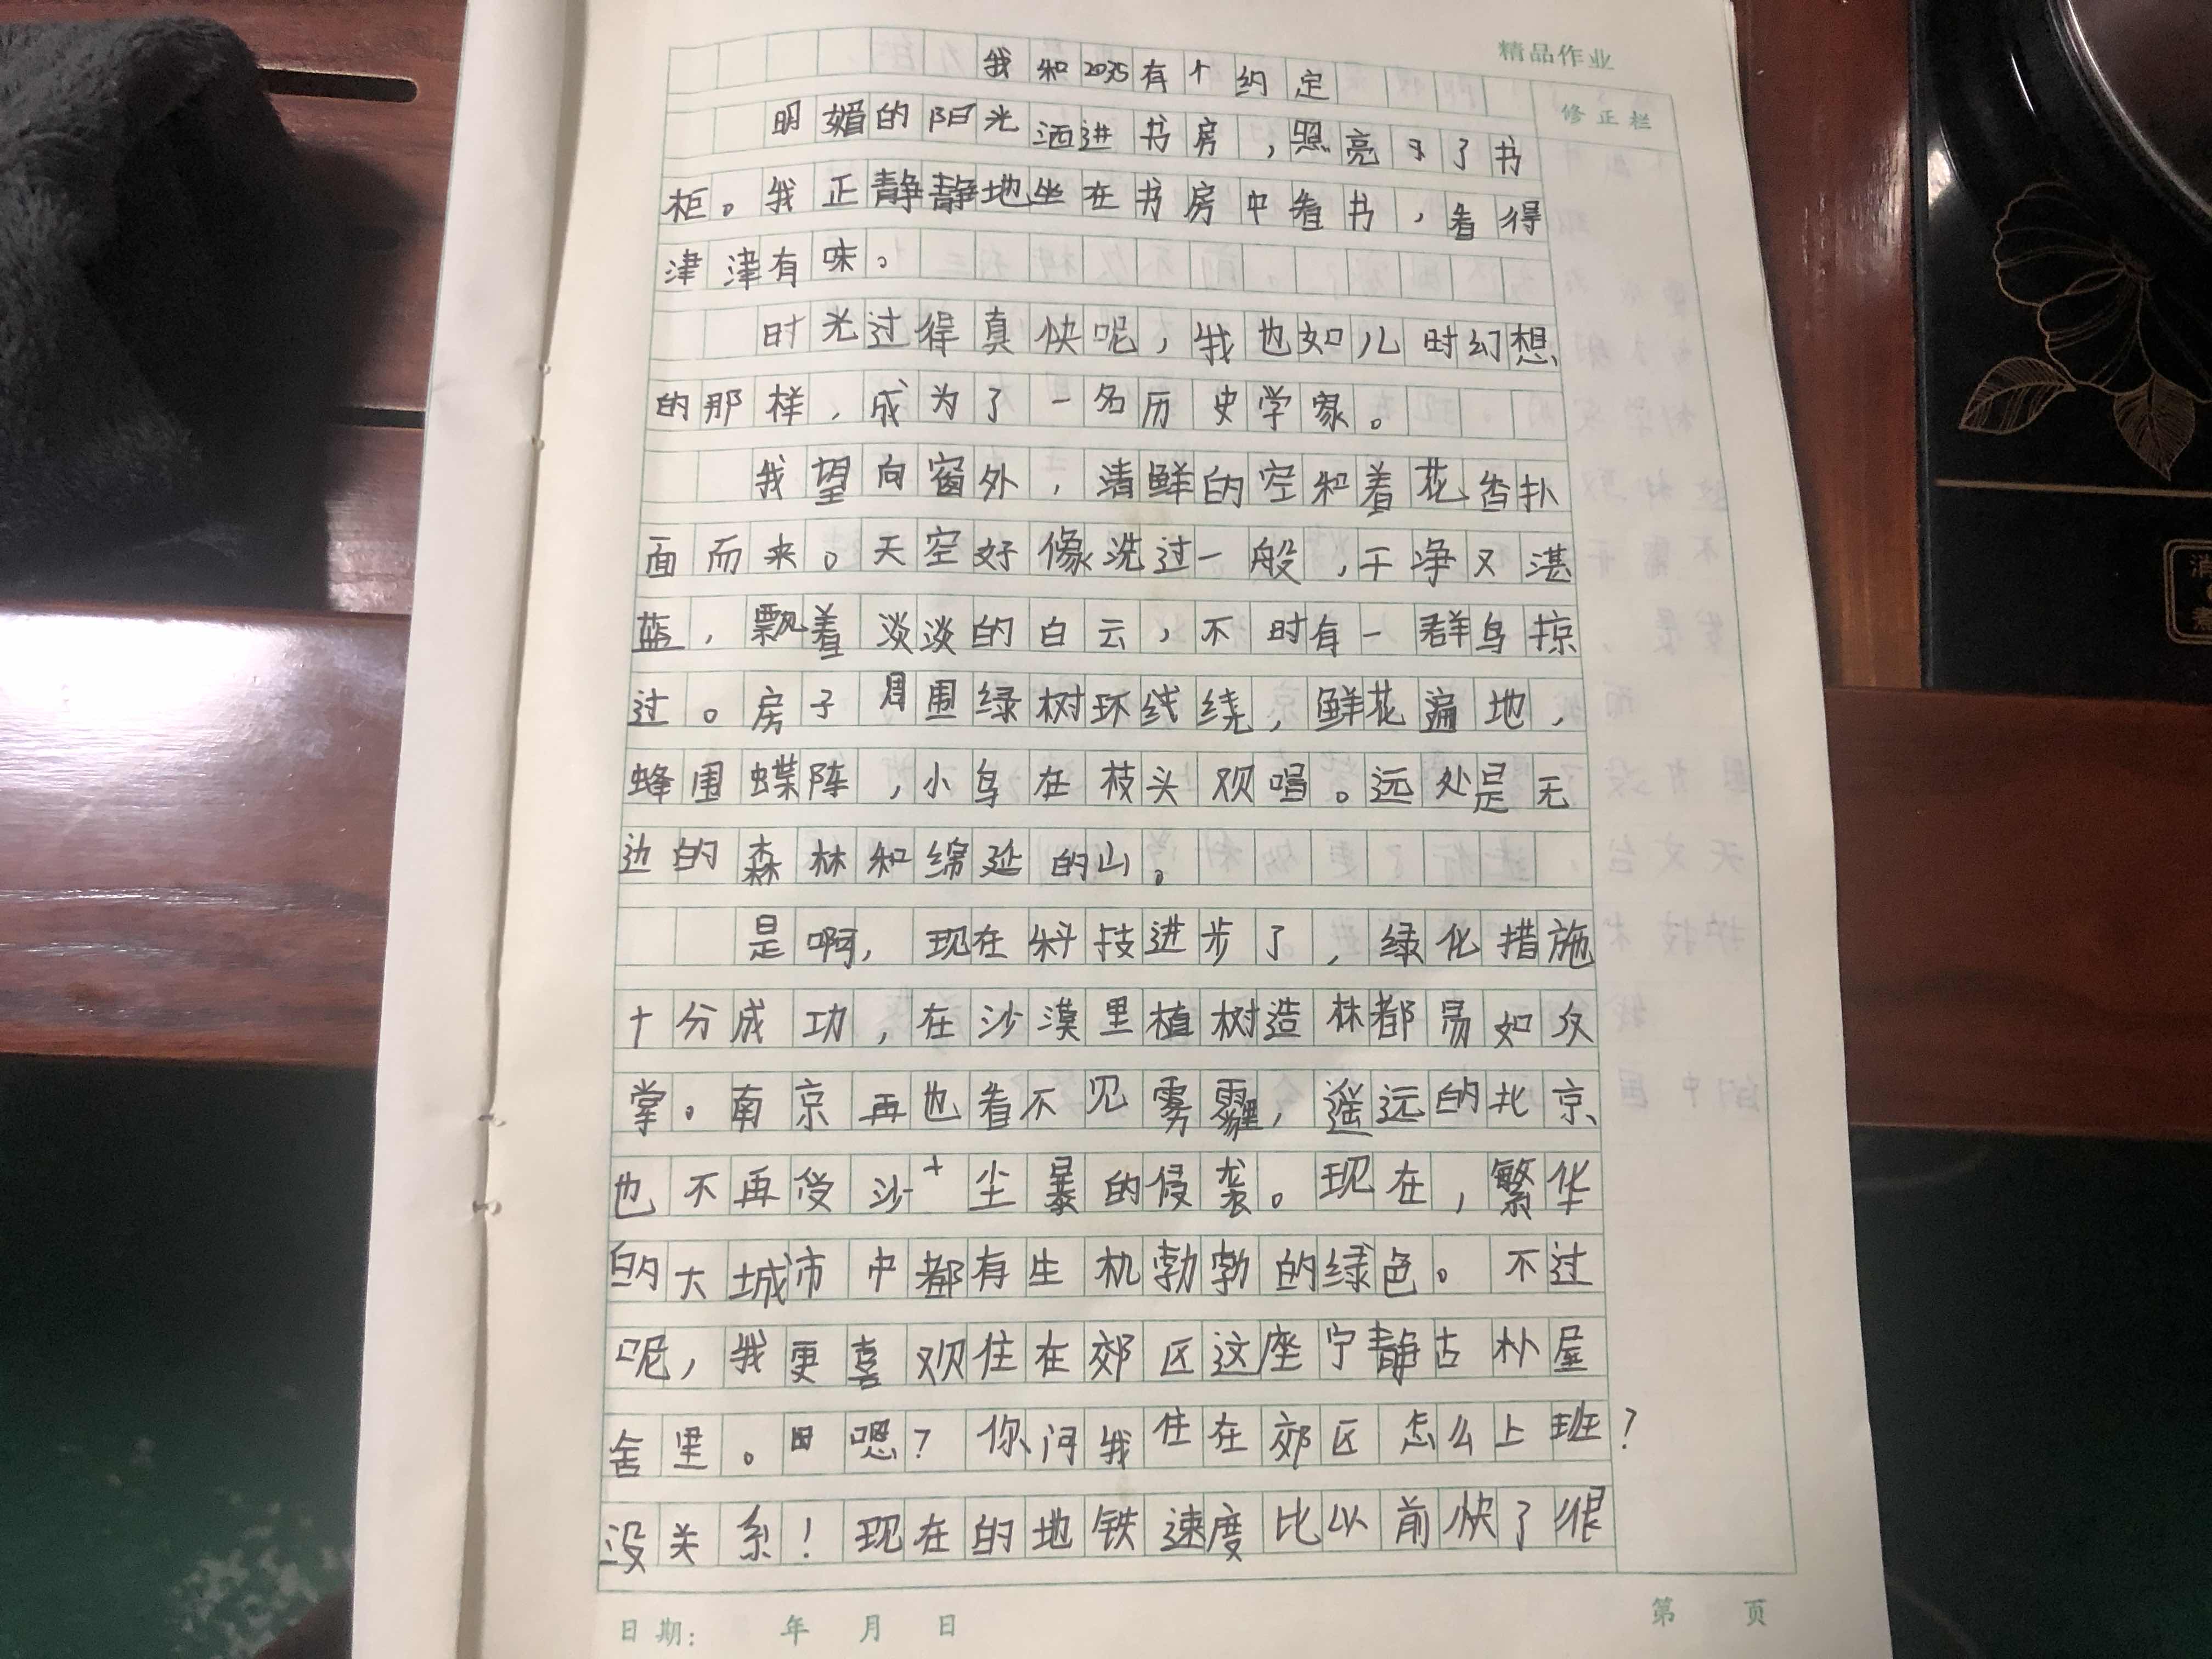 精品作业
修正栏
我和2035有个约定
明媚的阳光洒进书房，照亮了书
柜。我正静静地坐在书房中看书，看得
津津有味。
时光过得真快呢，我也如儿时幻想
的那样，成为了一名历史学家。
我望向窗外，清鲜的空和着花香扑
面而来。天空好像洗过一般，干净又湛
蓝，飘着淡淡的白云，不时有一群鸟掠
过。房子周围绿树环线绕，鲜花遍地，
蜂围蝶阵，小鸟在枝头欢唱。远处是无
边的森林和绵延的山。
是啊，现在科技进步了，绿化措施
十分成功，在沙漠里植树造林都易如反
掌。南京再也看不见雾霾，遥远的北京
也不再受沙尘暴的侵袭。现在，繁华
的大城市中都有生机勃勃的绿色。不过
呢，我更喜欢住在郊区这座宁静古朴屋
舍里。嗯？你问我住在郊区怎么上班？
没关系！现在的地铁速度比以前快了很
日期： 年 月 日
第 页